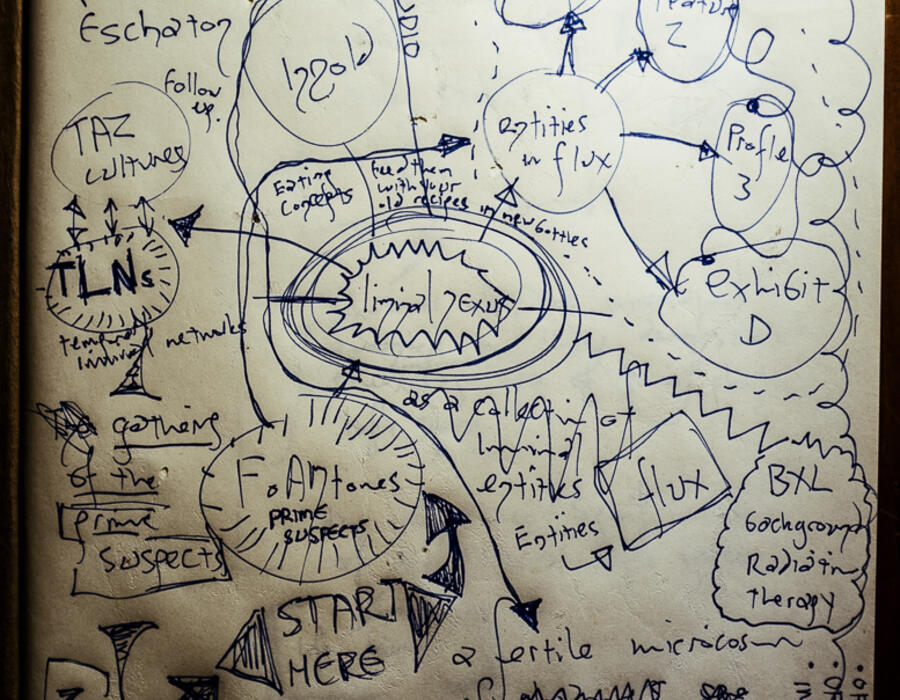 Eschaton
Ingold
Feature
2
Follow
up.
TAZ
cultures
entities
in flux
Profile
3
Eating
Concepts
feed them
with your
old recipes
in new bottles
TLNs
liminal nexus
exhibit
D
networks
gathering
of the
prime
suspects
FoAMtones
PRIME
SUSPECTS
as a collection of
liminal
entities
Entities
flux
BXL
background
Radiation
therapy
START
HERE
a fertile microcosm